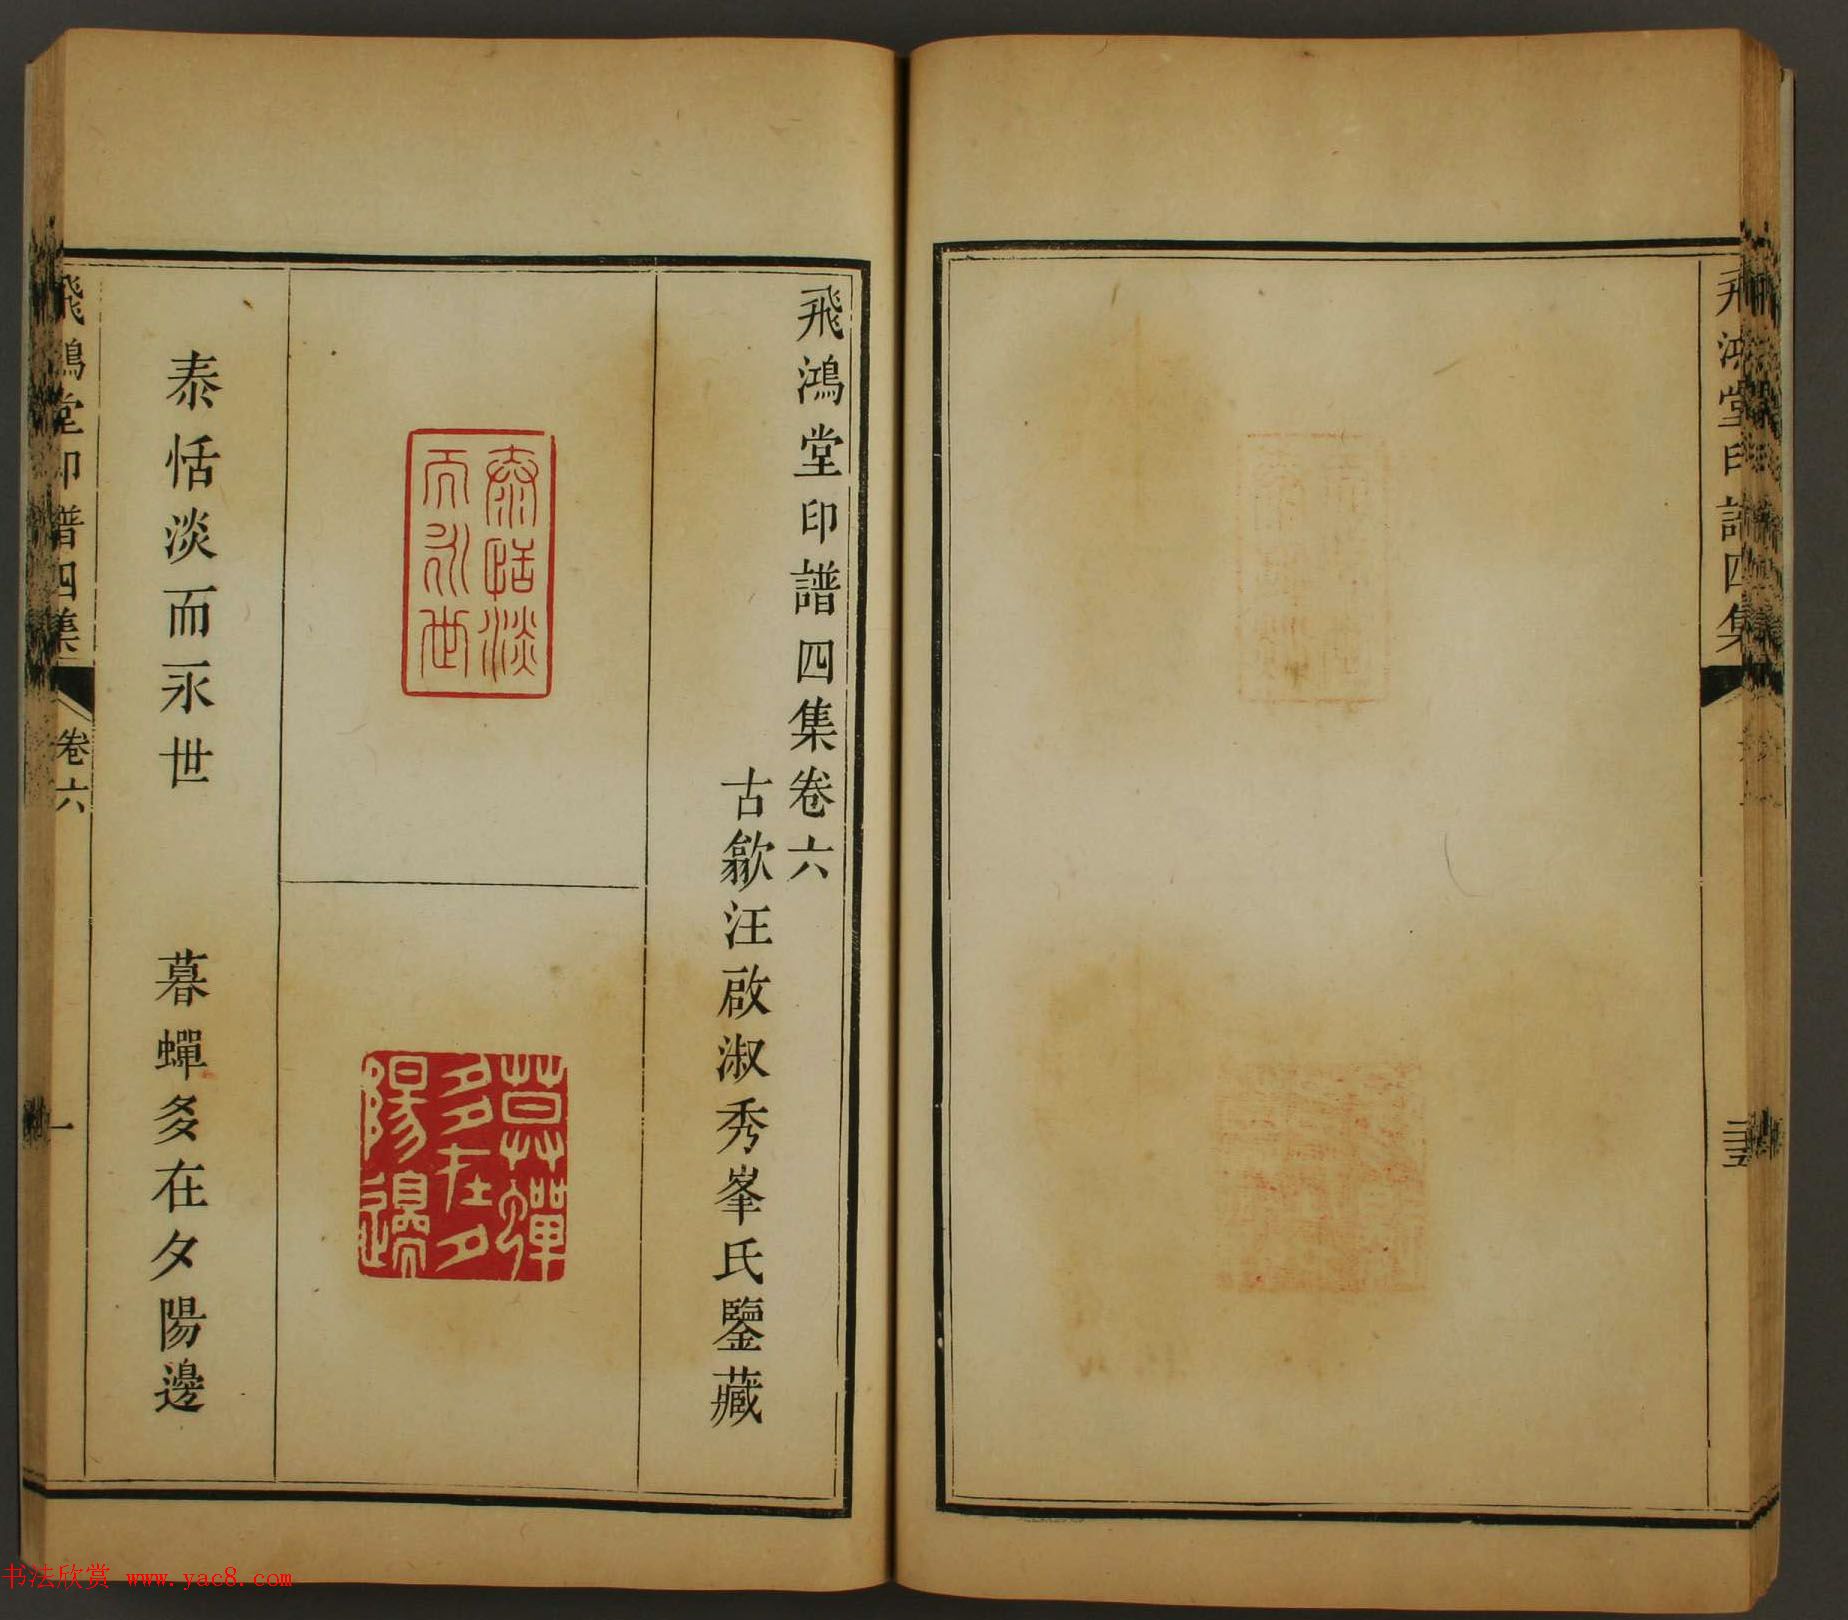 飛鴻堂印譜四集
飛鴻堂印譜四集卷六
古歙汪啟淑秀峯氏鑒藏
泰恬淡
而永世
暮蟬
多在夕
陽邊
泰恬淡而永世
暮蟬多在夕陽邊
飛鴻堂印譜四集
卷六
一
书法欣赏 www.yac8.com